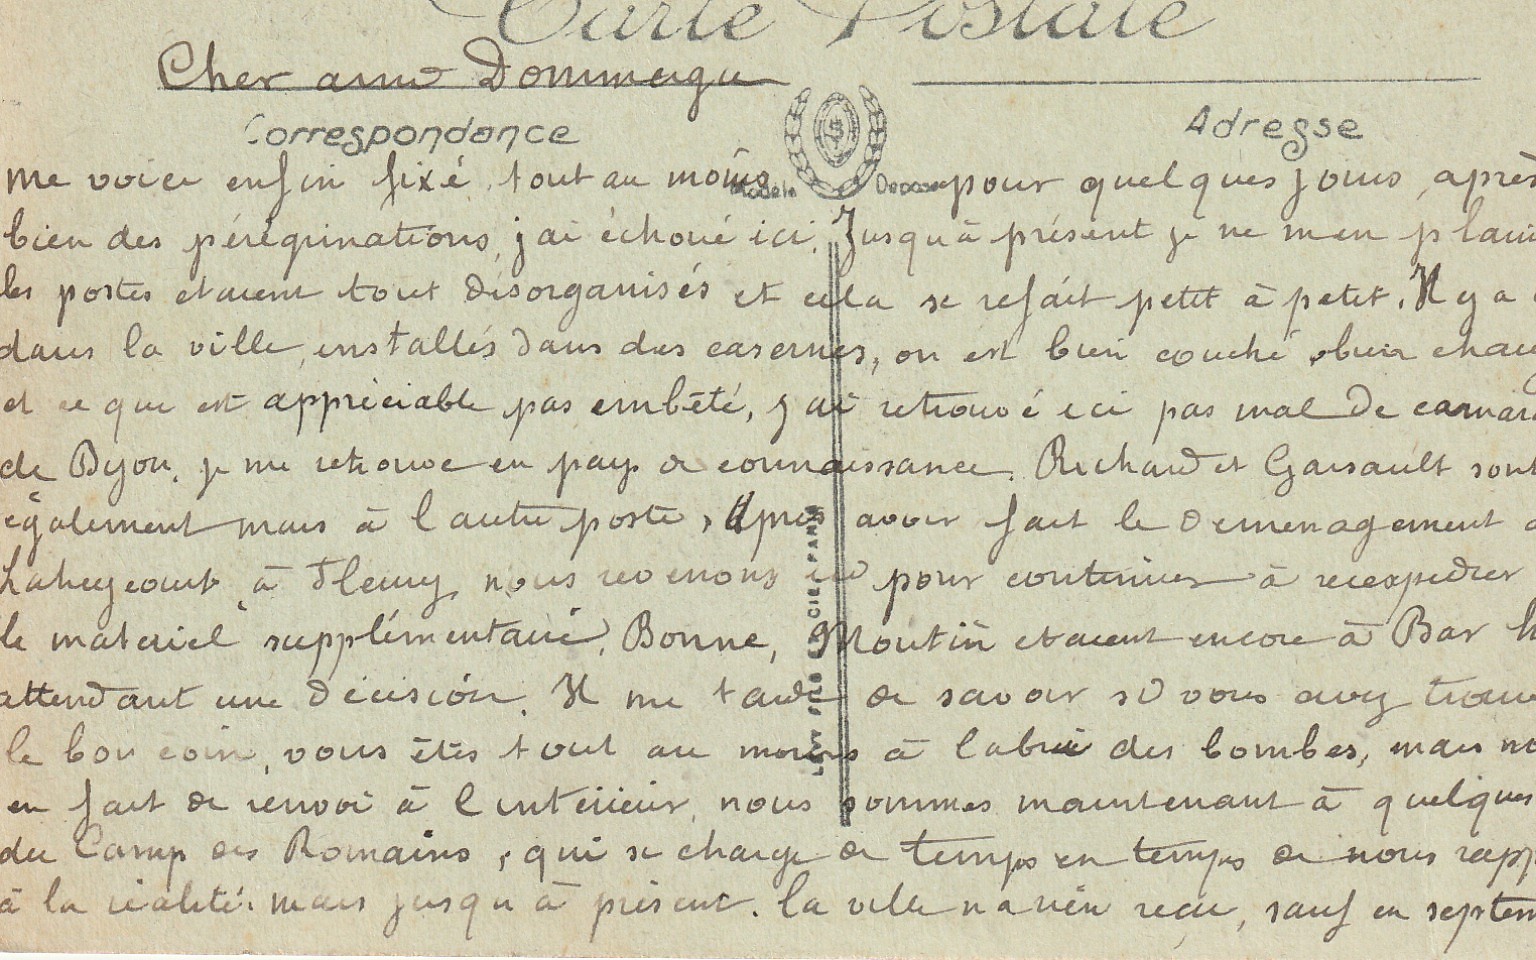 Carte Postale
Cher ami Dommergue
Correspondance
Adresse
Modèle Déposé
me voici enfin fixé, tout au moins pour quelques jours, après
bien des pérégrinations, j'ai échoué ici. Jusqu'à présent je ne m'en plain
les postes etaient tout désorganisés et cela se refait petit à petit. Il y a
dans la ville, installés dans des casernes, on est bien couché, bien chau
et ce que est appréciable pas embêté, j'ai retrouvé ici pas mal de camara
de Dijon. je me retrouve en pays de connaissance. Richard et Garsault sont
également mais à l'autre poste, Après avoir fait le demenagement
à Fleury, nous revenons ici pour continuer à réexpedier
le materiel supplémentaire. Bonne, Moutin etaient encore à Bar
attendant une décision. Il me tarde de savoir si vous avez trouv
le bon coin, vous êtes tout au moins à l'abri des bombes, mais no
en fait de renvoi à l'intérieur, nous sommes maintenant à quelques
du Camp des Romains, qui se charge de temps en temps de nous rapp
à la réalité. mais jusqu'à présent. la ville n'a rien reçu, sauf en septem
LEVY FILS & CIE PARIS